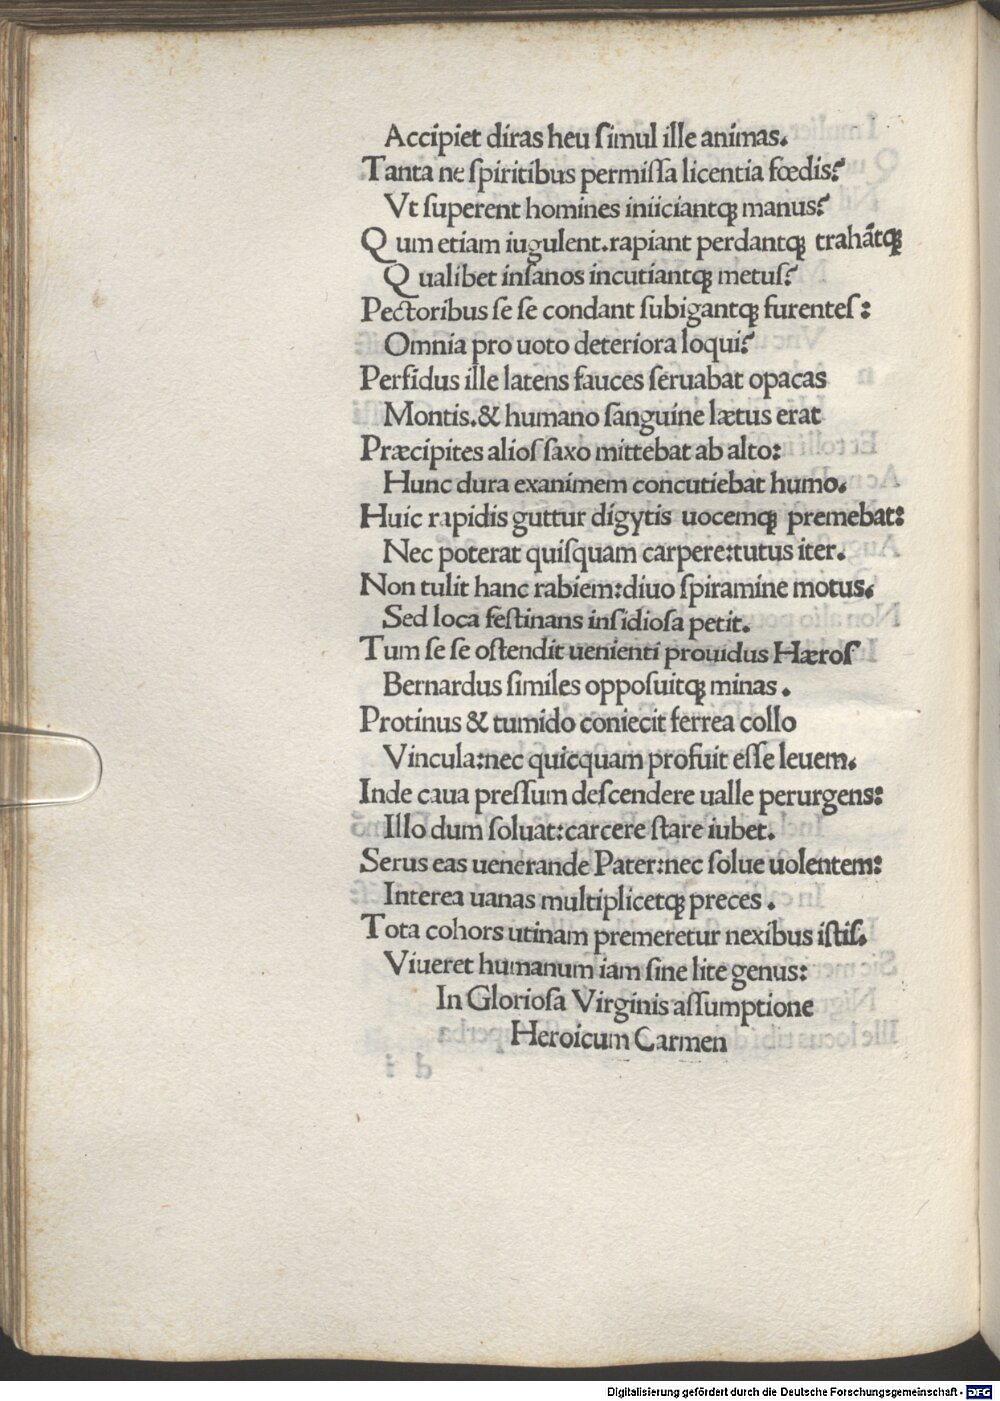 Accipiet diras heu ſimul ille animas.
Tanta ne ſpiritibus permiſſa licentia fœdis?
Vt ſuperent homines iniiciantꝗ manus?
Qum etiam iugulent.rapiant perdantꝗ trahãtꝗ
Qualibet inſanos incutiantꝗ metuſ?
Pectoribus ſe ſe condant ſubigantꝗ furenteſ:
Omnia pro uoto deteriora loqui?
Perfidus ille latens fauces ſeruabat opacas
Montis.& humano ſanguine lætus erat
Præcipites alioſ ſaxo mittebat ab alto:
Hunc dura exanimem concutiebat humo.
Huic rapidis guttur digytis uocemꝗ premebat:
Nec poterat quiſquam carpere:tutus iter.
Non tulit hanc rabiem:diuo ſpiramine motus.
Sed loca feſtinans inſidioſa petit.
Tum ſe ſe oſtendit uenienti prouidus Hæroſ
Bernardus ſimiles oppoſuitꝗ minas.
Protinus & tumido coniecit ferrea collo
Vincula:nec quicquam profuit eſſe leuem.
Inde caua preſſum deſcendere ualle perurgens:
Illo dum ſoluat:carcere ſtare iubet.
Serus eas uenerande Pater:nec ſolue uolentem:
Interea uanas multiplicetꝗ preces.
Tota cohors utinam premeretur nexibus iſtiſ.
Viueret humanum iam ſine lite genus:
In Glorioſa Virginis aſſumptione
Heroicum Carmen
Digitalisierung gefördert durch die Deutsche Forschungsgemeinschaft - DFG